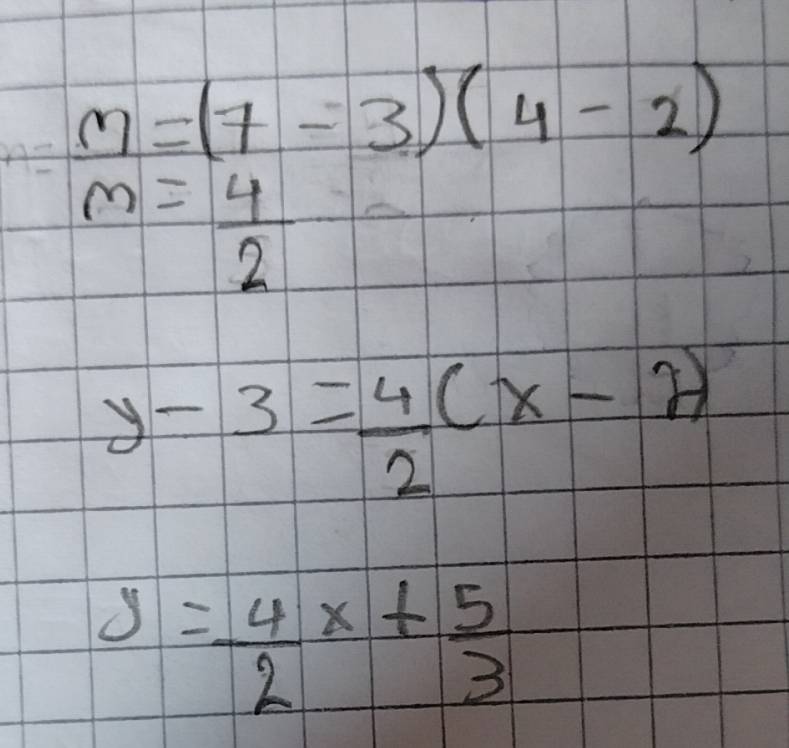 m = (7 - 3)(4 - 2)
m = 4/2
y - 3 = 4/2 (x - 2)
y = 4/2 x + 5/3